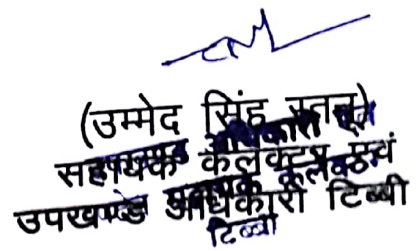 (उम्मेद सिंह रतनू)
सहायक कलेक्टर एवं
उपखण्ड अधिकारी टिब्बी
टिब्बी